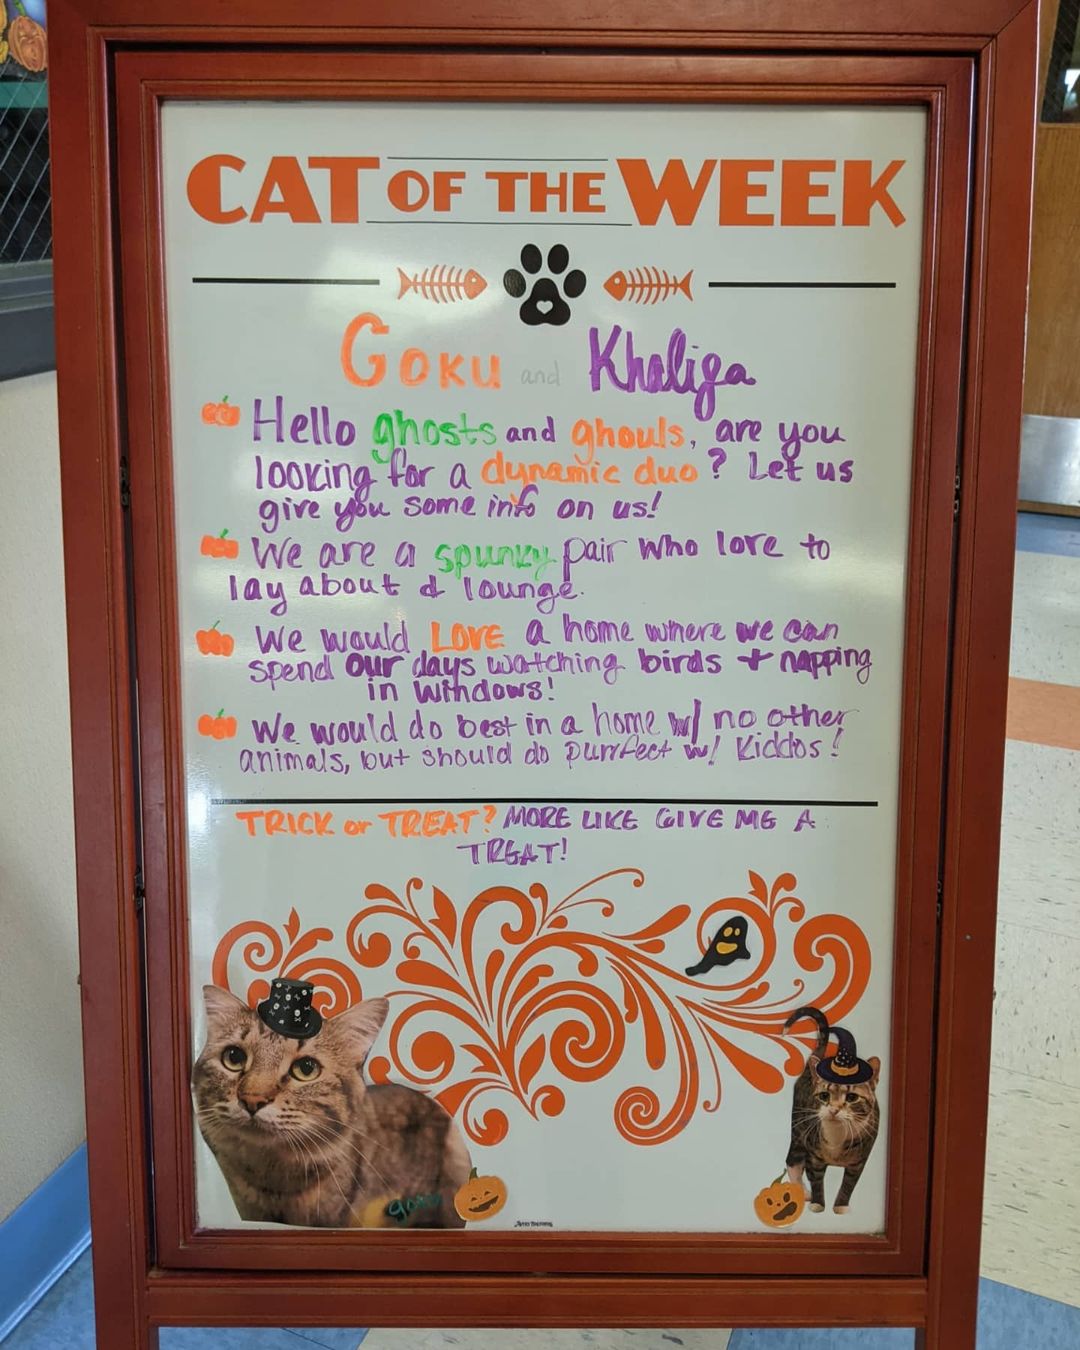 CAT OF THE WEEK
GOKU and Khaliga
Hello ghosts and ghouls, are you
looking for a dynamic duo? Let us
give you some info on us!
We are a spunky pair who love to
lay about & lounge.
We would LOVE a home where we can
spend our days watching birds + napping
in windows!
We would do best in a home w/ no other
animals, but should do purrfect w/ kiddos!
TRICK or TREAT? MORE LIKE GIVE ME A
TREAT!
goku